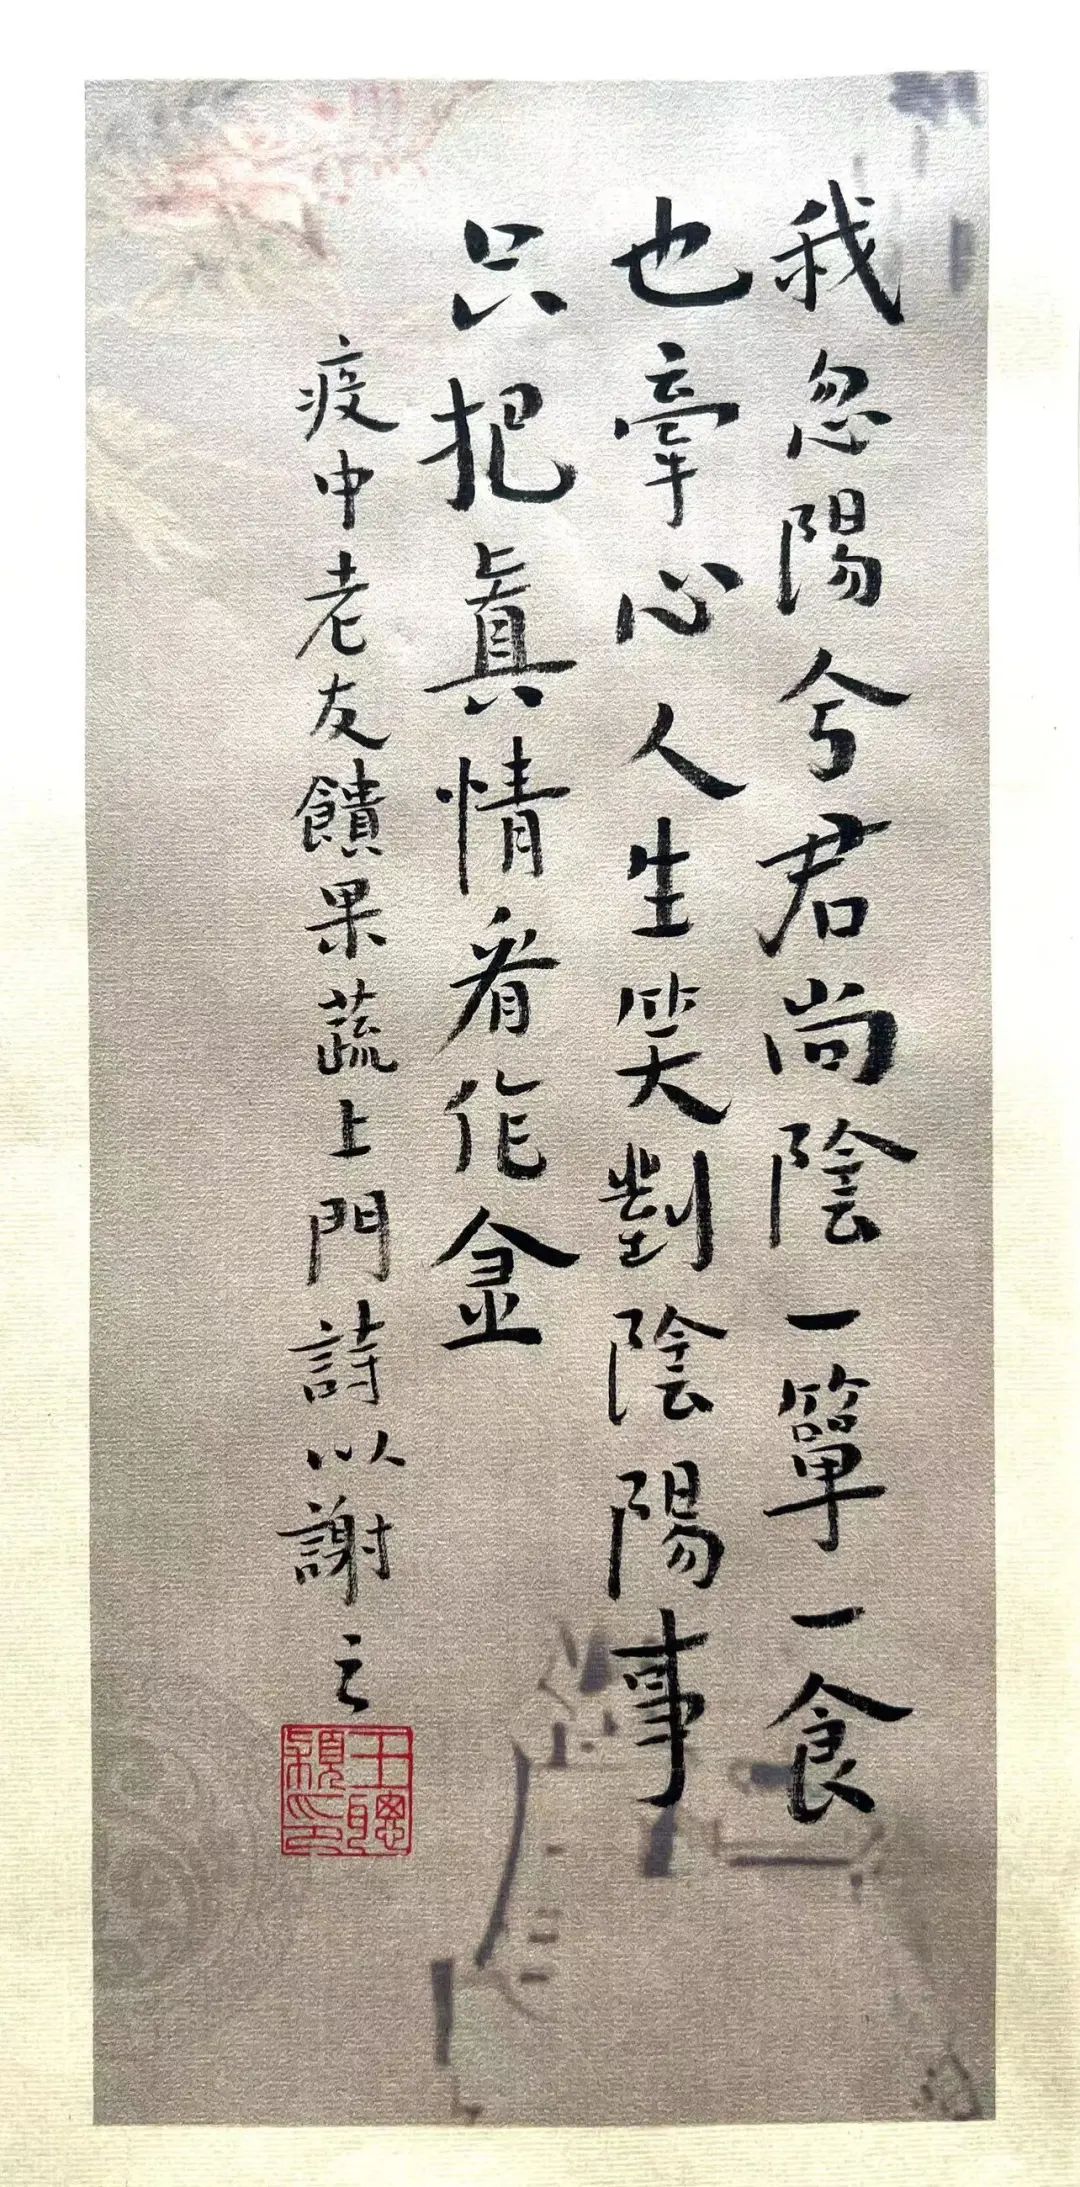 我忽陽兮君尚陰一簞一食
也牽心人生笑對陰陽事
只把真情看作金
疫中老友饋果蔬上門詩以謝之
王聰穎印